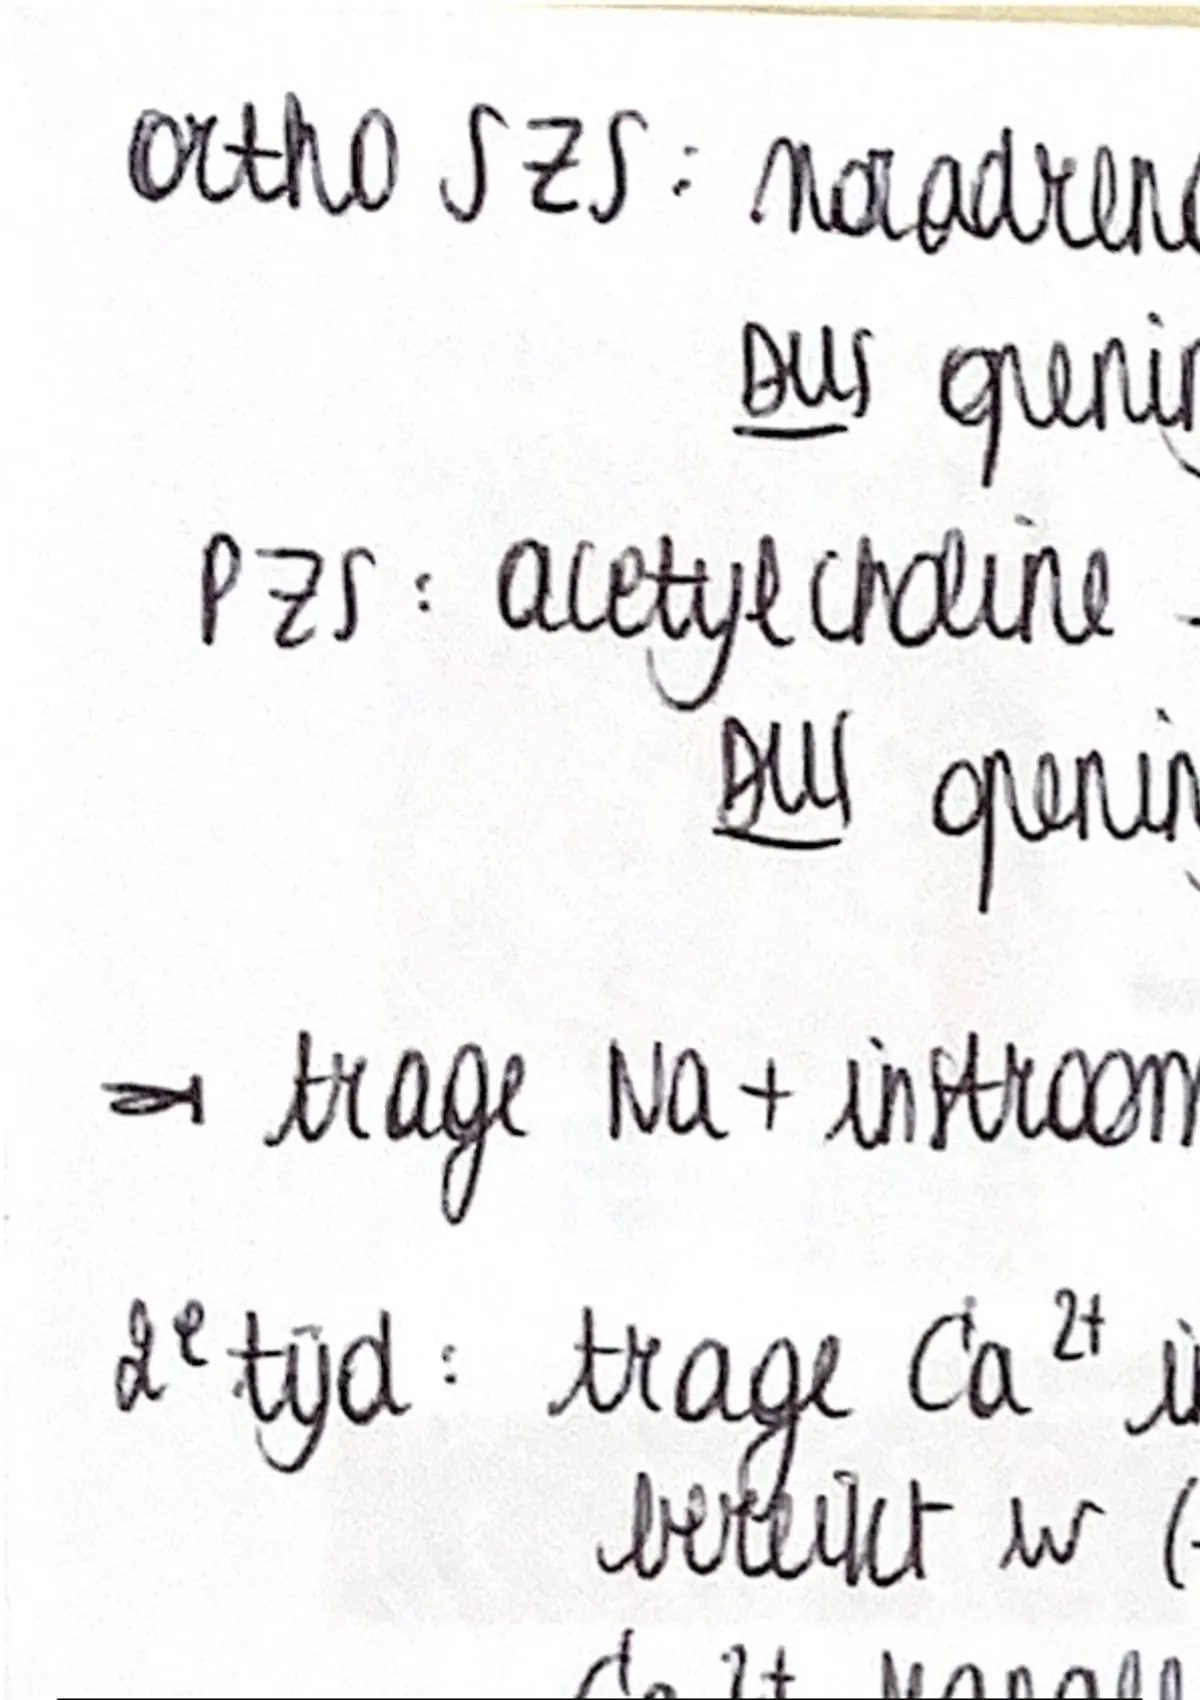 ortho SZS: noradrena
DUS openin
PZS: acetylcholine -
DUS openin
⇒ trage Na+ instroom
2e tijd: trage Ca 2+ i
bereikt w (
Ca 2+ kanall